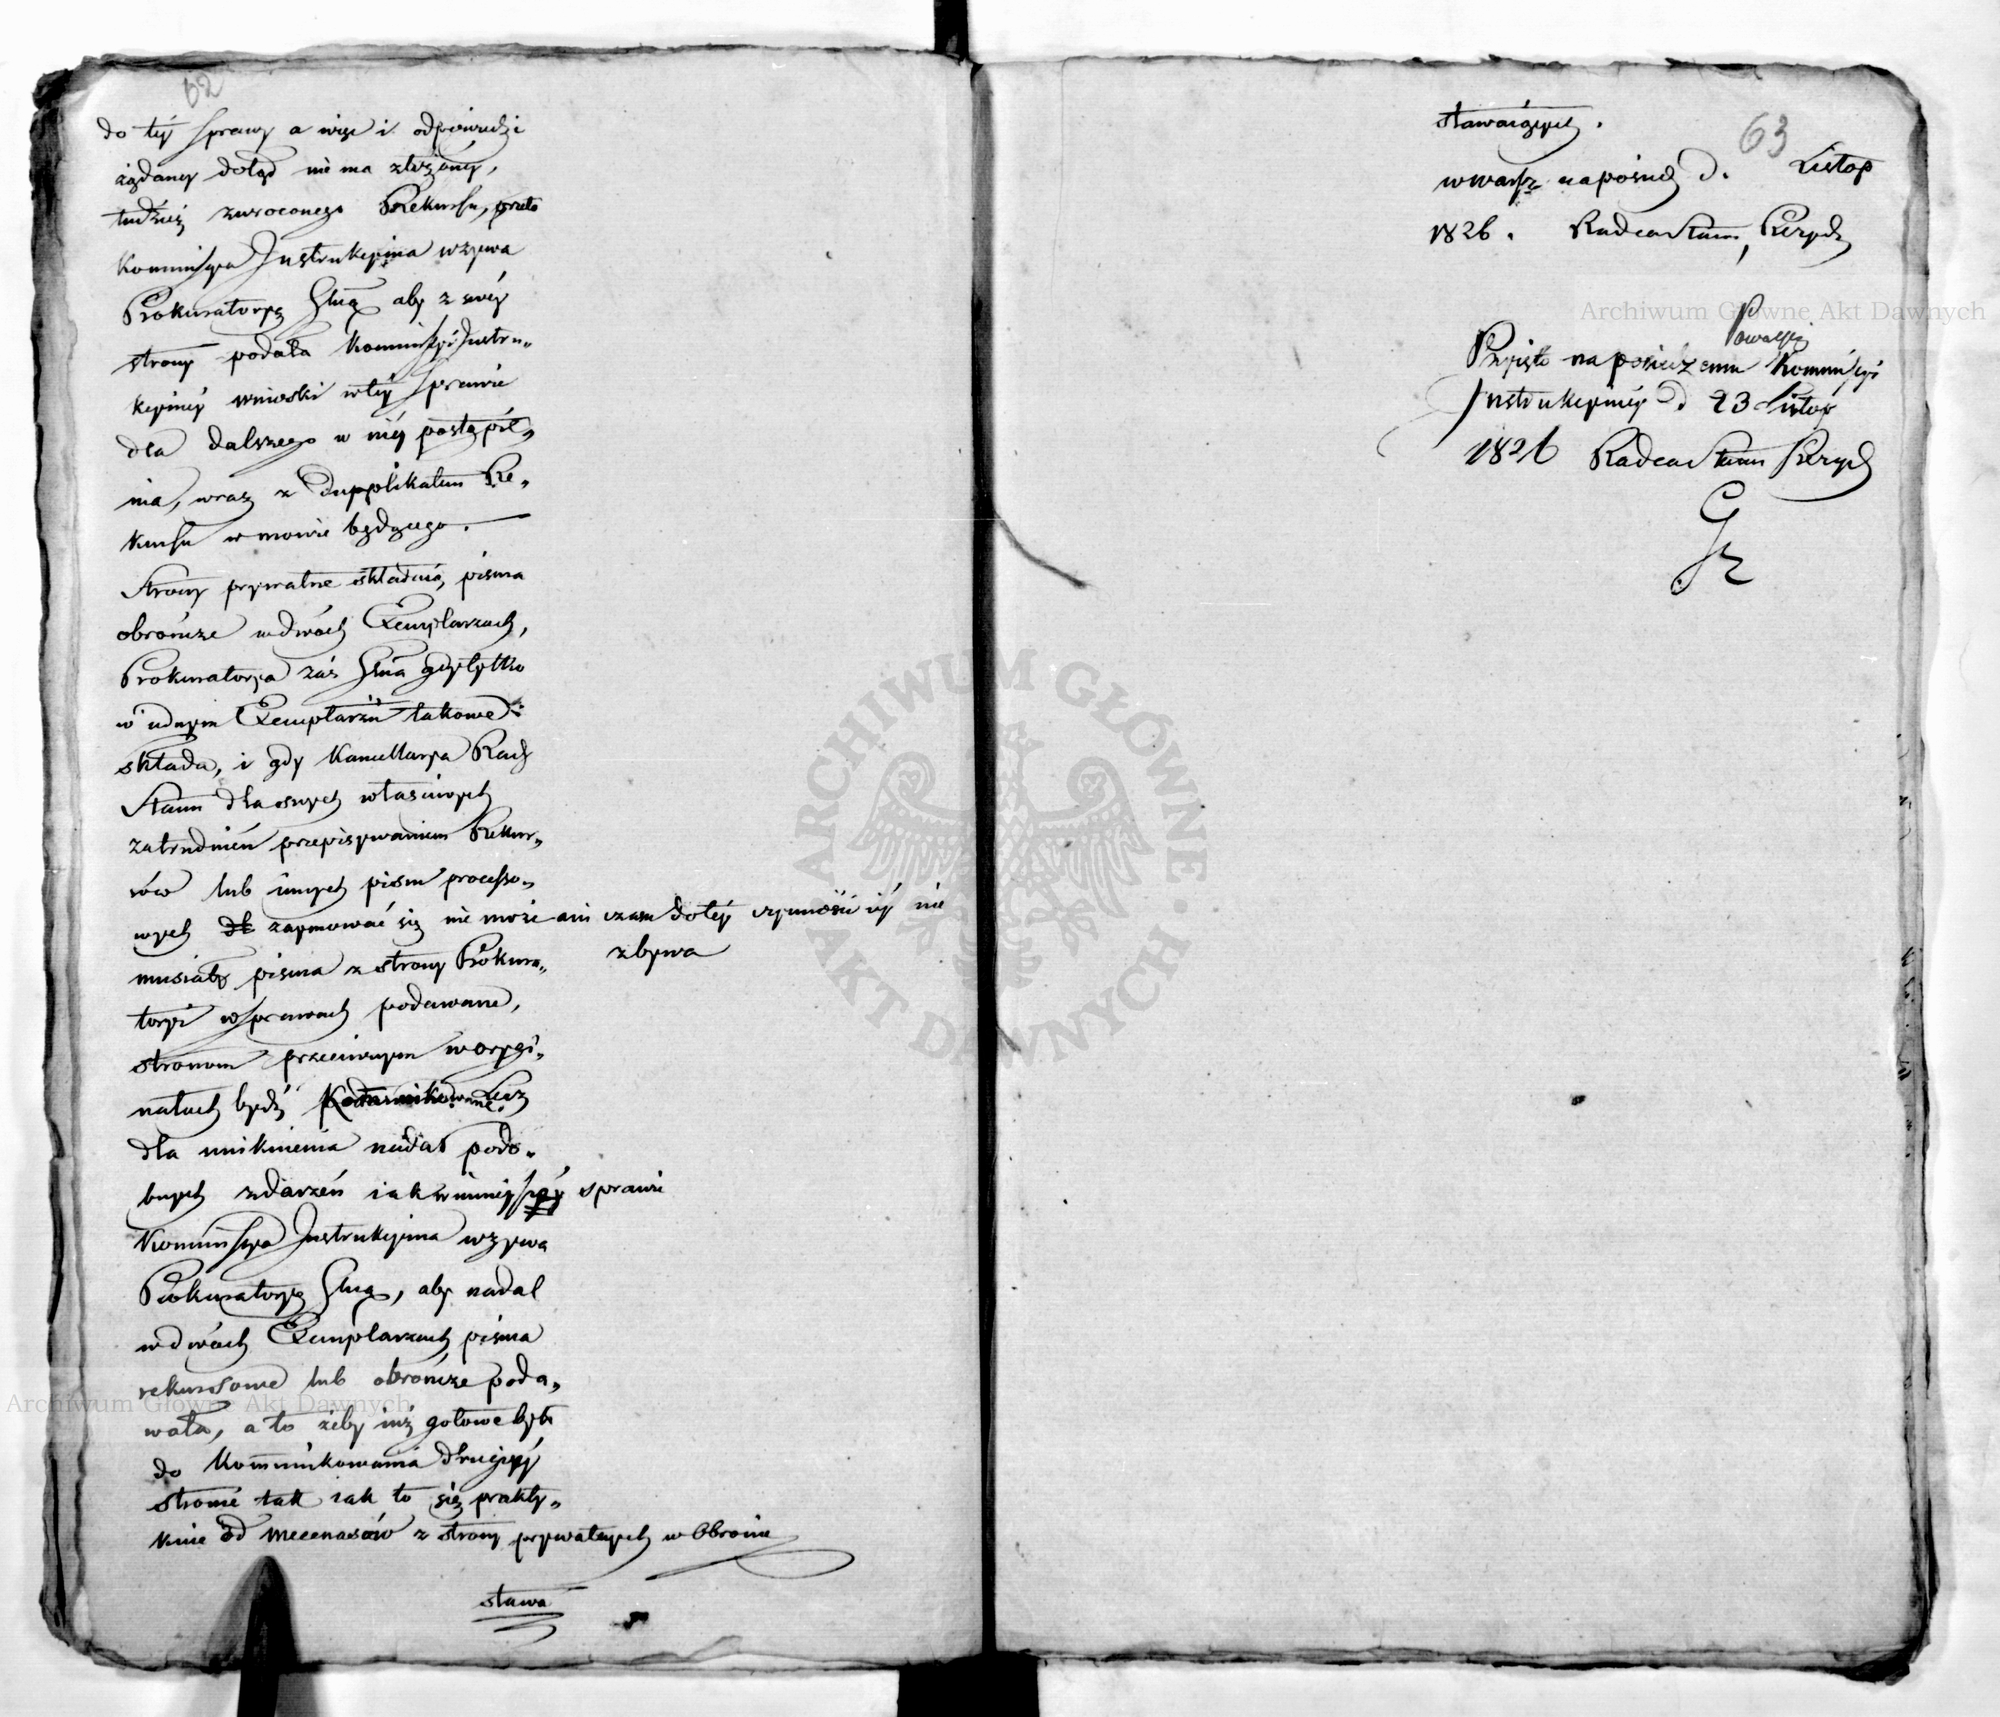 62
do téy sprawy a więc i odpowiedzi
żądaney dotąd nie ma złożoney,
tudzież zwroconego Rekursu, przeto
Kommissya Instrukcyina wzywa
Prokuratoryą Glną aby z swéy
strony podała Kommissyi Instru„
kcyinéy wnioski w téy sprawie
dla dalszego w niéy postąpie„
nia, wraz z Dupplikatem Re„
kursu w mowie będącego.
Strony prywatne składaią pisma
obrończe w dwóch Exemplarzach,
Prokuratorya zaś Glna gdy tylko
w iednym Exemplarzu takowe
składa, i gdy Kancellarya Rady
Stanu dla swych właściwych
zatrudnień przepisywaniem Rekur„
sów lub innych pism processo„
wych zaymować się nie może ani czasu do téy czynności iéy nie
zbywa
musiały pisma z strony Prokura„
toryi w sprawach podawane,
stronom przeciwnym w orygi„
nałach bydź Lecz
dla uniknienia nadal podo„
bnych zdarzeń iak w ninieyszéy sprawie
Kommissya Instrukcyina wzywa
Prokuratoryą Glną, aby nadal
w dwóch Exemplarzach pisma
rekursowe lub obrończe poda„
wała, a to żeby iuż gotowe były
do kommunikowania drugiéy
stronie tak iak to się prakty„
kuie od Mecenasów z strony prywatnych w Obronie
stawa
63
stawaiących.
w Warsz. na posied. D. Listop
1826. Radca Stanu, Prezyd
Powalski
Przyięto na posiedzeniu Kommissyi
Instrukcyinéy D 23 Listop
1826 Radca Stanu Prezyd
Archiwum Główne Akt Dawnych
Archiwum Główne Akt Dawnych
ARCHIWUM GŁÓWNE · AKT DAWNYCH ·